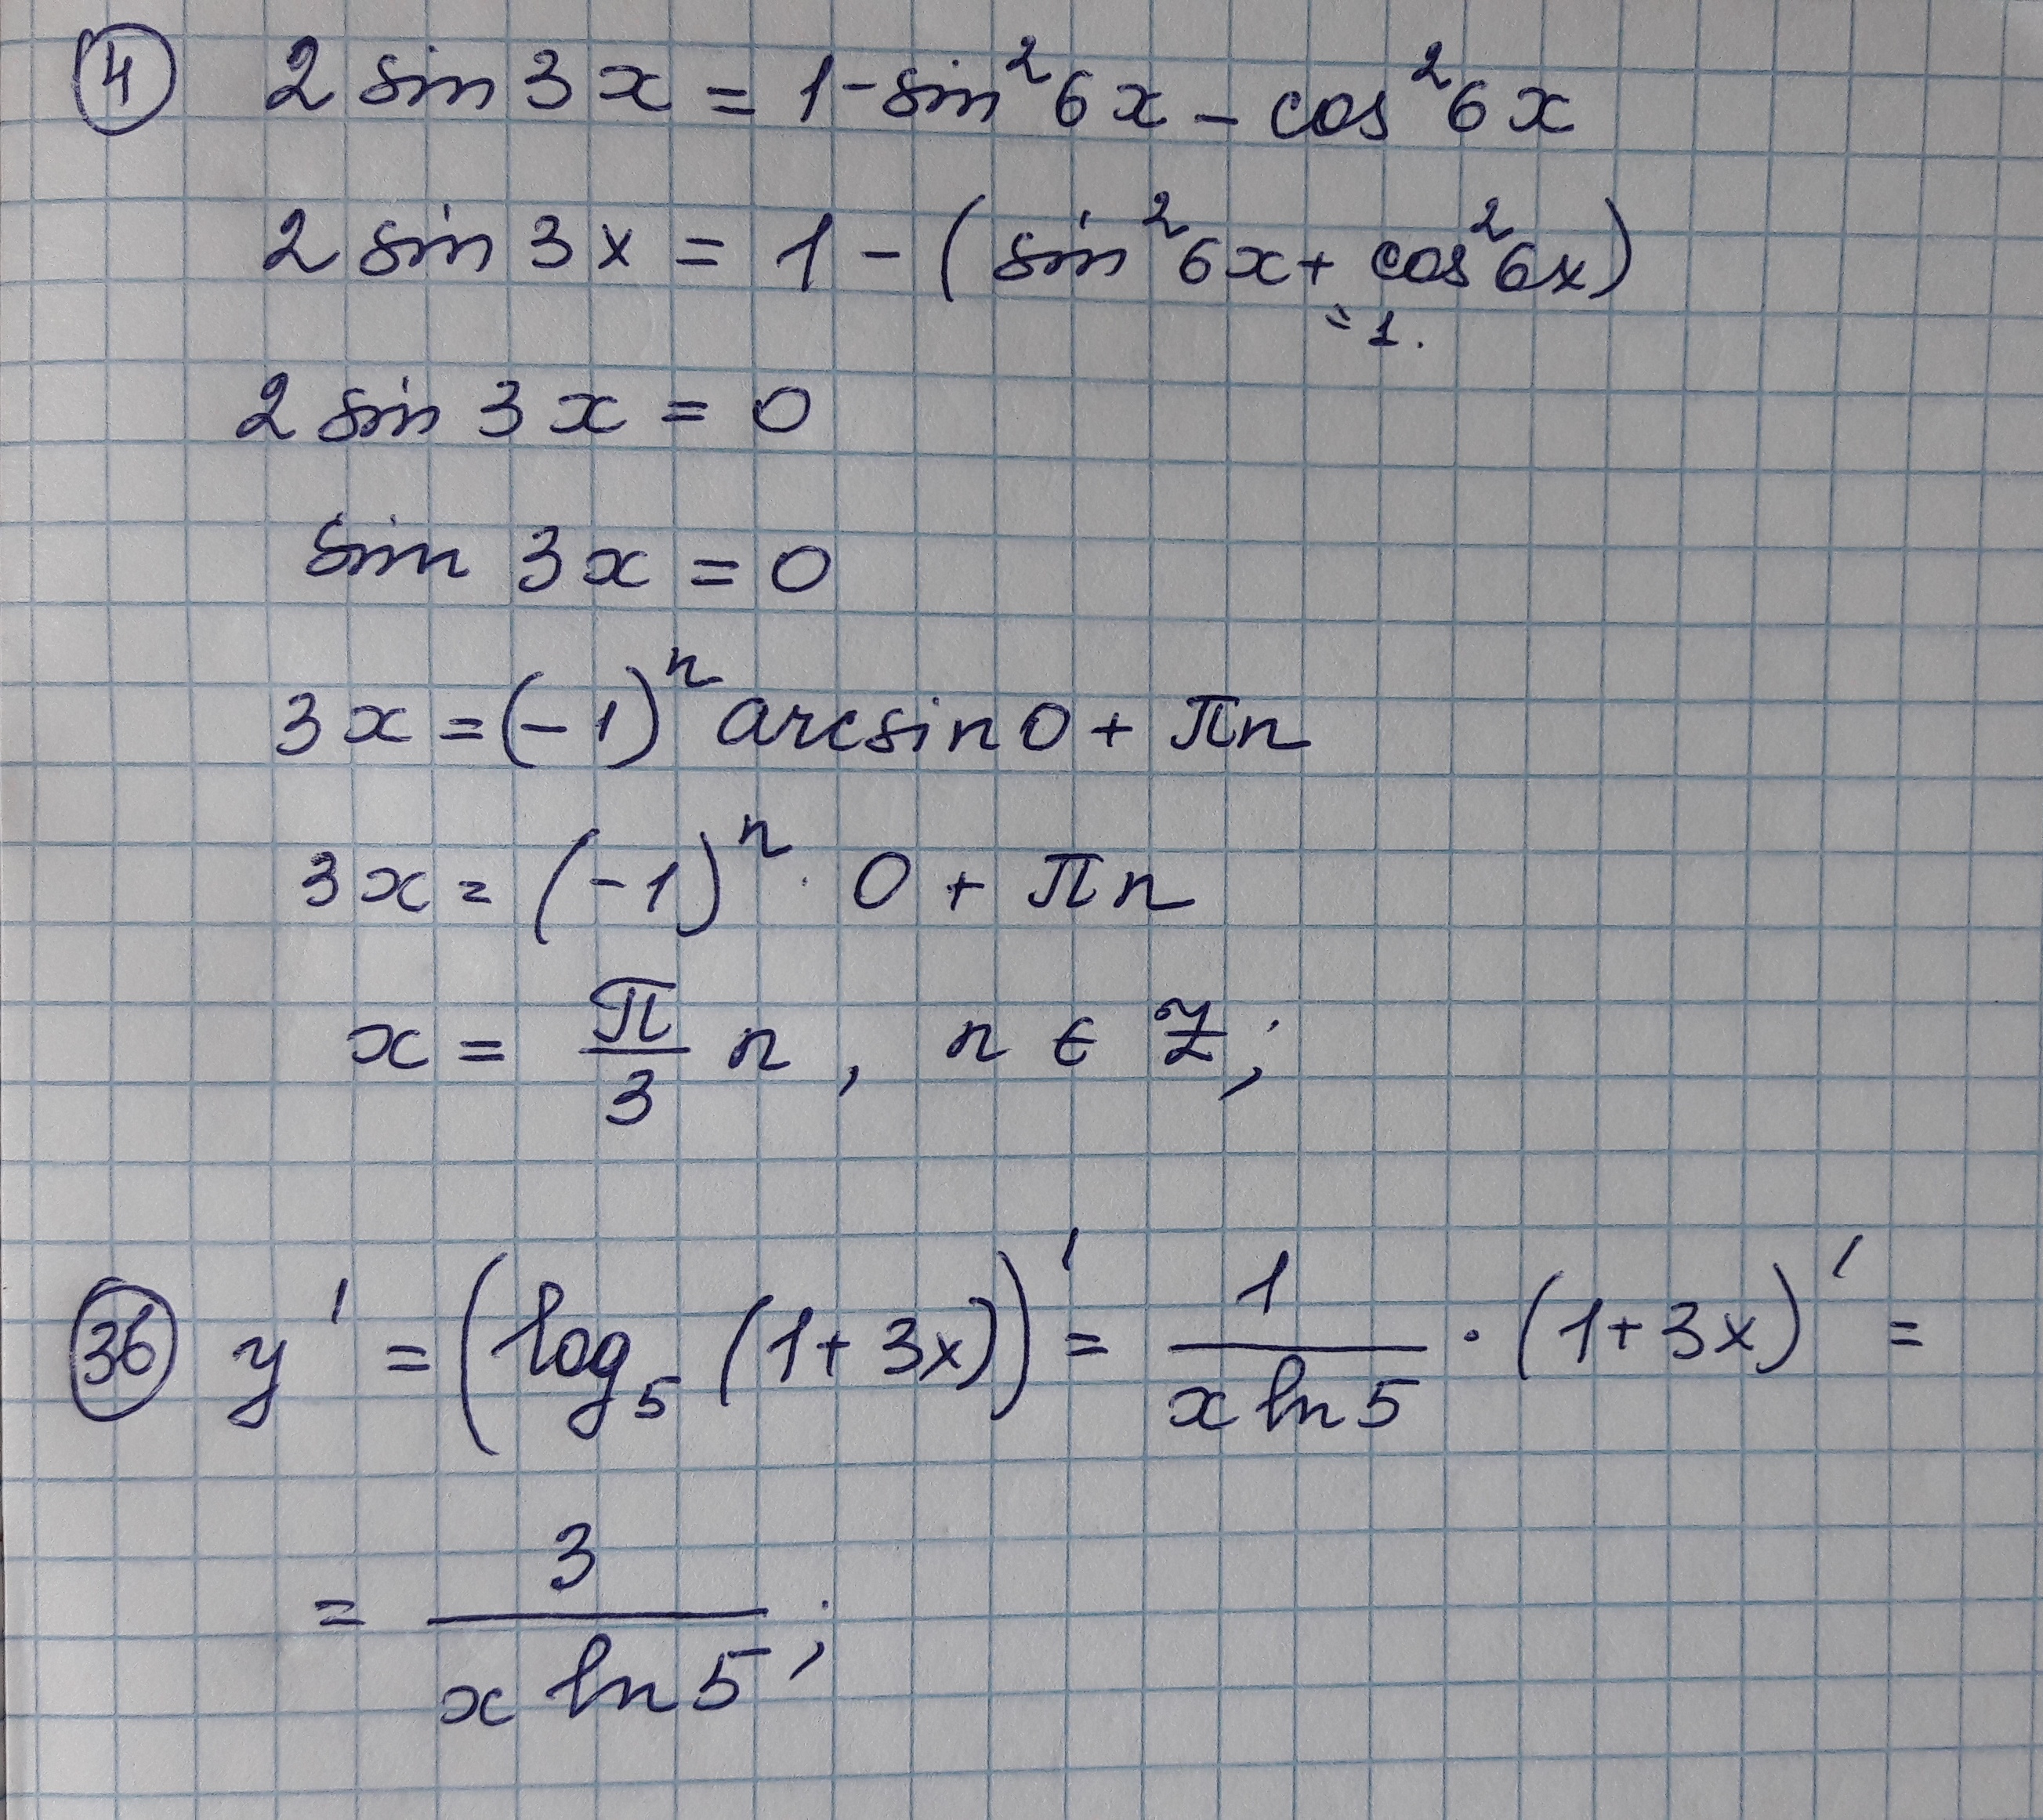 ④ 2 sin 3x = 1 - sin²6x - cos²6x
2 sin 3x = 1 - (sin²6x + cos²6x)
= 1.
2 sin 3x = 0
sin 3x = 0
3x = (-1)ⁿ arcsin 0 + πn
3x = (-1)ⁿ · 0 + πn
x = π/3 n, n ∈ Z;
㊱ y' = (log₅ (1 + 3x))' = 1/(x ln 5) · (1 + 3x)' =
= 3/(x ln 5);